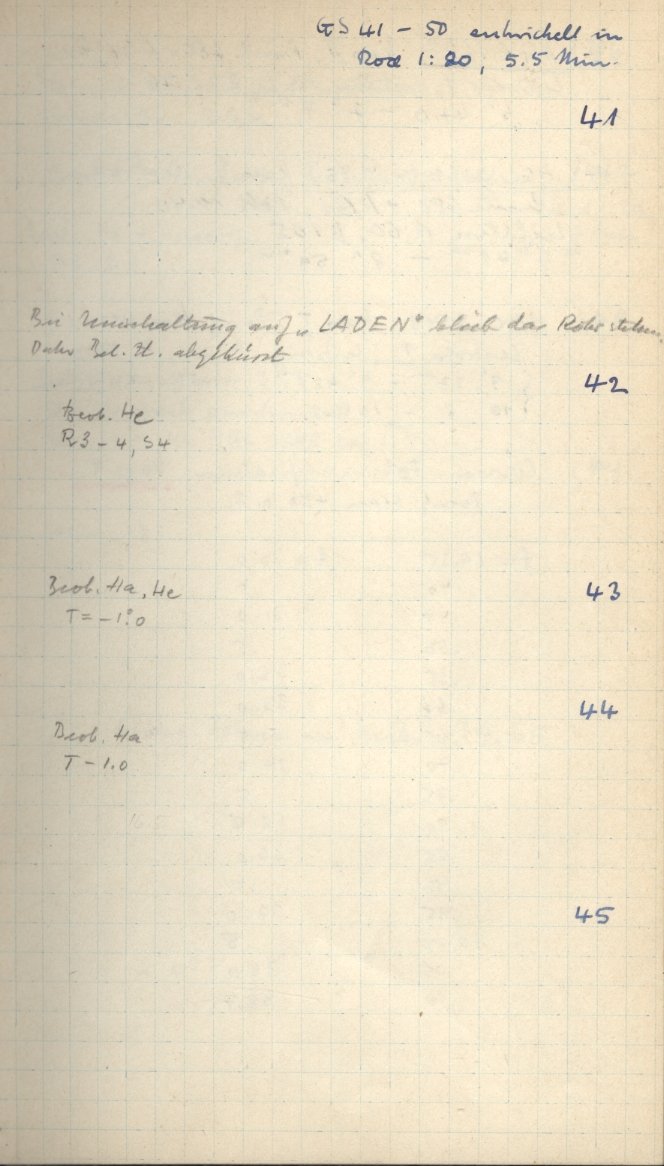 GS 41 - 50 entwickelt in
Rod 1:20, 5.5 Min.
41
Bei Umschaltung auf „LADEN" blieb das Rohr stehen.
Daher Bel. Zt. abgekürzt
42
Beob. He
R3 - 4, S4
Beob. Ha, He
43
T = -1°.0
44
Beob. Ha
T - 1.0
45